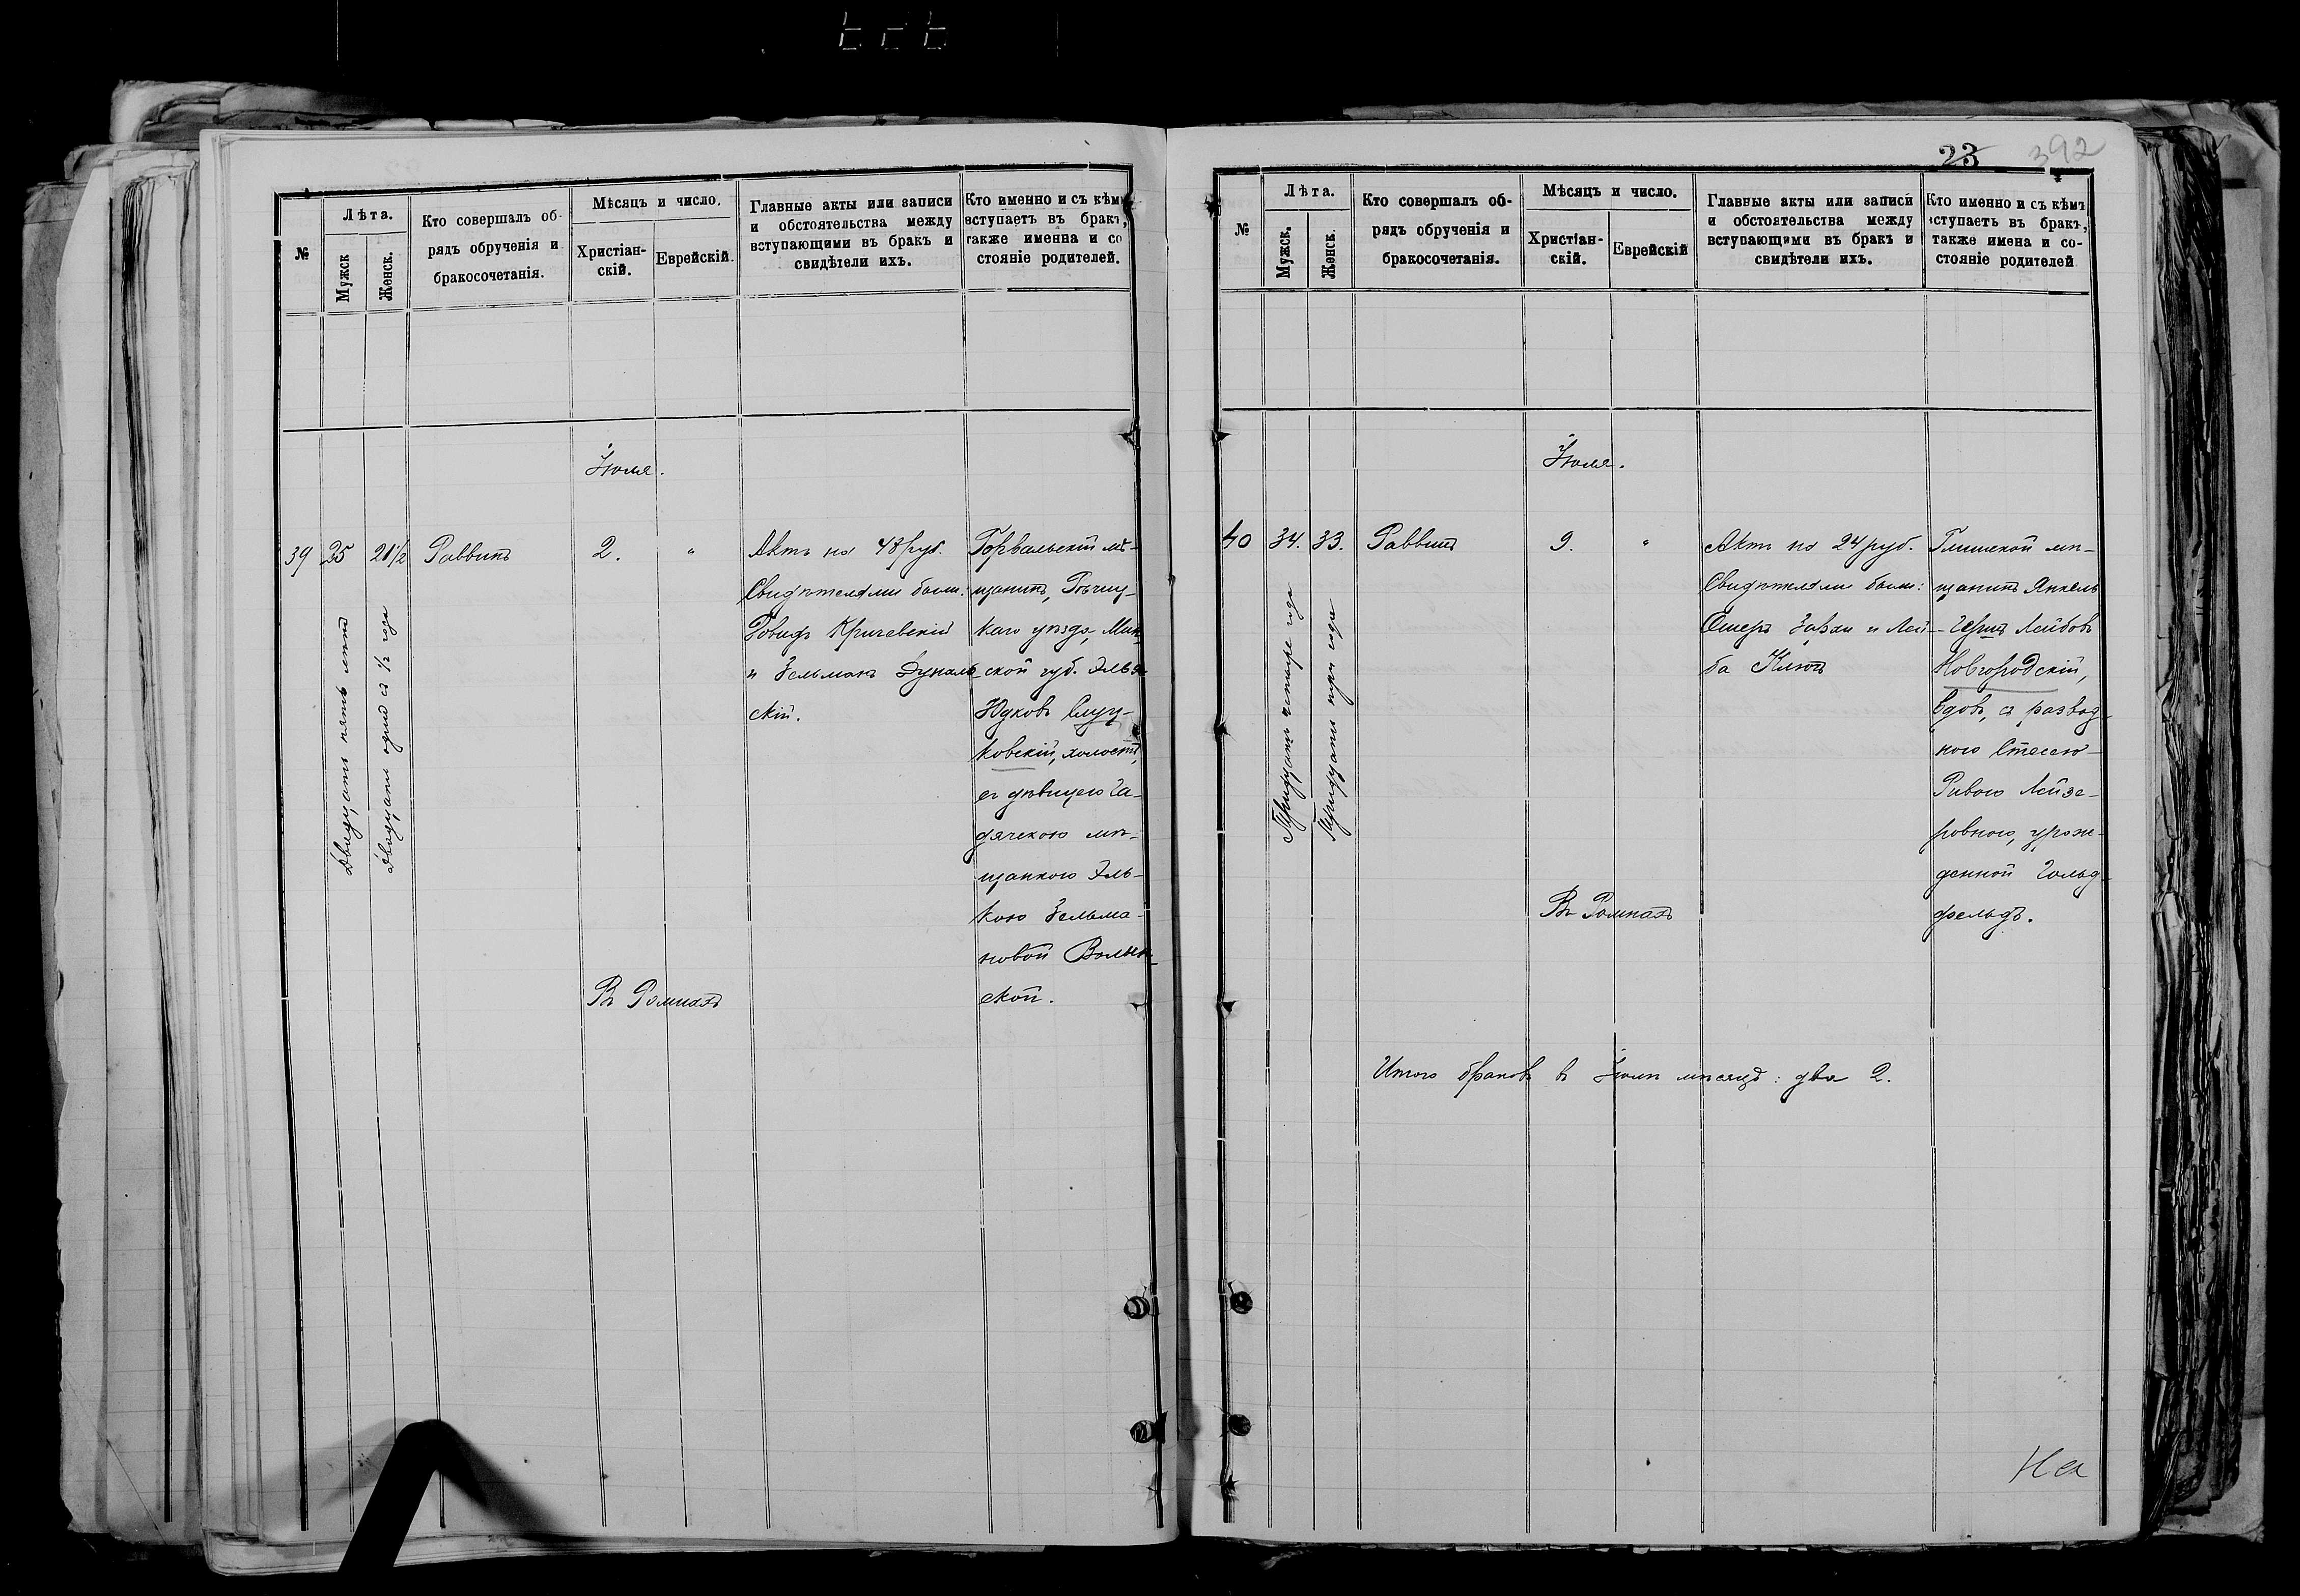 №
Лѣта.
Мужск
Женск.
Кто совершалъ об-
рядъ обрученія и
бракосочетанія.
Мѣсяцъ и число.
Христіан-
скій.
Еврейскій.
Главные акты или записи
и обстоятельства между
вступающими въ бракъ и
свидѣтели ихъ.
Кто именно и съ кѣмъ
вступаетъ въ бракъ,
также именна и со
стояніе родителей.
39
25
21 1/2
Двадцать пять лѣтъ
Двадцать одинъ съ 1/2 года
Раввинъ
2.
"
Актъ на 48 руб.
Свидѣтелями были:
Довидъ Кричевскій
и Зельманъ
скій.
Горвальскій мѣ-
щанинъ, Рѣчиц-
каго уѣзда, Мин
ской губ.
Юдковъ
ковскій, холостъ,
съ дѣвицею Га-
дячскою мѣ-
щанкою Эль-
кою Зельма-
новой Волын-
ской.
Въ Ромнахъ
23
392
№
Лѣта.
Мужск.
Женск.
Кто совершалъ об-
рядъ обрученія и
бракосочетанія.
Мѣсяцъ и число.
Христіан-
скій.
Еврейскій
Главные акты или записи
и обстоятельства между
вступающими въ бракъ и
свидѣтели ихъ.
Кто именно и съ кѣмъ
вступаетъ въ бракъ,
также имена и со-
стояніе родителей
40
34.
33.
Тридцать четыре года
Тридцать три года
Раввинъ
9.
"
Актъ на 24 руб.
Свидѣтелями были:
Ошеръ и Лей-
ба
мѣ-
щанинъ Янкель
Гершъ Лейбовъ
Новгородскій,
вдовъ, съ развод-
ною
Ривою Лейзе-
ровною, урож-
денной Гольд-
фельдъ.
Въ Ромнахъ
Итого браковъ въ мѣсяцѣ: два 2.